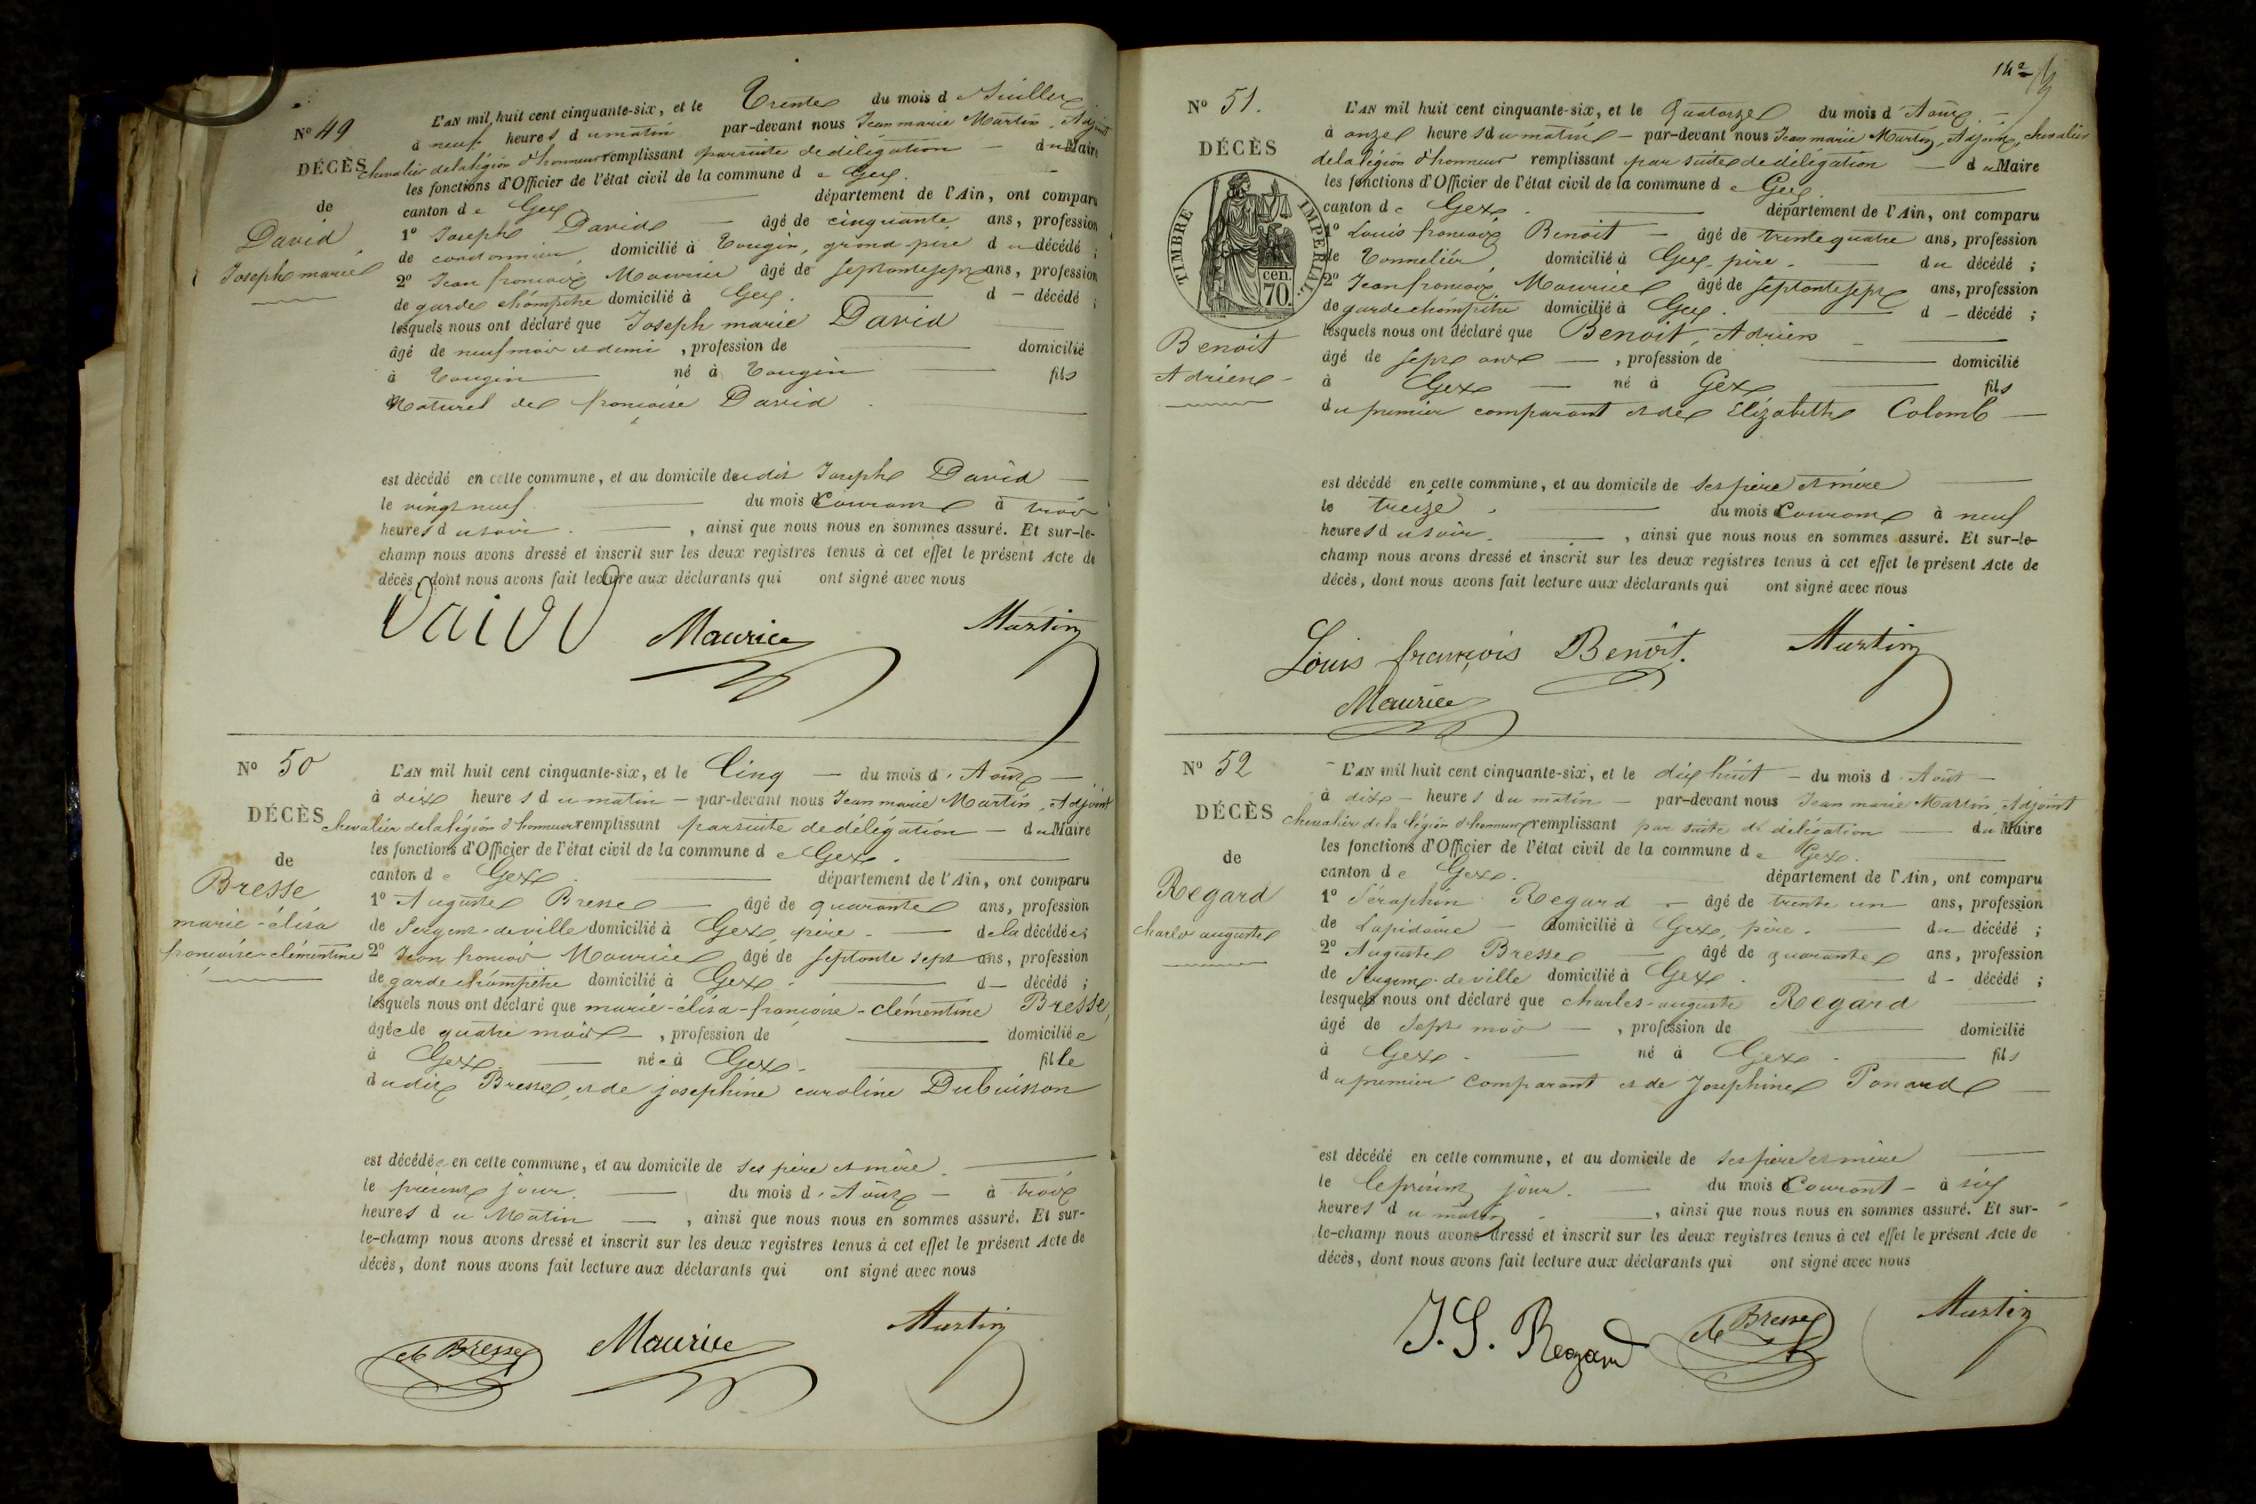 Nº 49
DÉCÈS
de
David
Joseph marie
L'AN mil huit cent cinquante-six, et le Trente du mois d Juillet
à neuf heures du matin par-devant nous Jean marie Martin, Adjoint
chevalier de la légion d'honneur remplissant par suite de délégation — du Maire
les fonctions d'Officier de l'état civil de la commune de Gex.
canton de Gex département de l'Ain, ont comparu
1º Joseph David — âgé de cinquante ans, profession
de cordonnier, domicilié à Tougin, grand père du décédé ;
2º Jean françois Maurice âgé de septante sept ans, profession
de garde champêtre domicilié à Gex. d — décédé ;
lesquels nous ont déclaré que Joseph marie David
âgé de neuf mois et demi, profession de — domicilié
à Tougin — né à Tougin — fils
Naturel de françoise David.
est décédé en cette commune, et au domicile dudit Joseph David —
le vingt neuf — du mois Courant à trois
heures du soir. — , ainsi que nous nous en sommes assuré. Et sur-le-
champ nous avons dressé et inscrit sur les deux registres tenus à cet effet le présent Acte de
décès, dont nous avons fait lecture aux déclarants qui ont signé avec nous
Maurice Martin
Nº 50
DÉCÈS
de
Bresse
marie-élisa
françoise-clémentine
L'AN mil huit cent cinquante-six, et le Cinq — du mois d'Août —
à dix heures du matin — par-devant nous Jean marie Martin, Adjoint
chevalier de la légion d'honneur remplissant par suite de délégation — du Maire
les fonctions d'Officier de l'état civil de la commune de Gex.
canton de Gex — département de l'Ain, ont comparu
1º Auguste Bresse — âgé de quarante ans, profession
de Sergent-de ville domicilié à Gex, père — de la décédée ;
2º Jean françois Maurice âgé de septante sept ans, profession
de garde champêtre domicilié à Gex. — d — décédé ;
lesquels nous ont déclaré que marie-élisa-françoise-clémentine Bresse,
âgée de quatre mois —, profession de — domiciliée
à Gex — née à Gex. — fille
dudit Bresse, et de joséphine caroline Dubuisson
est décédée en cette commune, et au domicile de ses père et mère. —
le présent jour. — du mois d'Août — à trois
heures du Matin — , ainsi que nous nous en sommes assuré. Et sur-
le-champ nous avons dressé et inscrit sur les deux registres tenus à cet effet le présent Acte de
décès, dont nous avons fait lecture aux déclarants qui ont signé avec nous
Bresse Maurice Martin
Nº 51.
DÉCÈS
TIMBRE IMPÉRIAL.
cen.
70.
Benoit
Adrien
L'AN mil huit cent cinquante-six, et le Quatorze du mois d'Août —
à onze heures du matin — par-devant nous Jean marie Martin, Adjoint, chevalier
de la légion d'honneur remplissant par suite de délégation — du Maire
les fonctions d'Officier de l'état civil de la commune de Gex.
canton de Gex. — département de l'Ain, ont comparu
1º Louis françois Benoit — âgé de trente quatre ans, profession
de Tonnelier, domicilié à Gex, père. — du décédé ;
2º Jean françois Maurice âgé de septante sept ans, profession
de garde champêtre domicilié à Gex. — d — décédé ;
lesquels nous ont déclaré que Benoit, Adrien —
âgé de sept ans —, profession de — domicilié
à Gex — né à Gex — fils
du premier comparant et de Elizabeth Colomb —
est décédé en cette commune, et au domicile de ses père et mère —
le treize. — du mois Courant à neuf
heures du soir. — , ainsi que nous nous en sommes assuré. Et sur-le-
champ nous avons dressé et inscrit sur les deux registres tenus à cet effet le présent Acte de
décès, dont nous avons fait lecture aux déclarants qui ont signé avec nous
Louis françois Benoit. Martin
Maurice
Nº 52
DÉCÈS
de
Regard
charles auguste
L'AN mil huit cent cinquante-six, et le dix huit — du mois d'Août —
à dix — heures du matin — par-devant nous Jean marie Martin, Adjoint
chevalier de la légion d'honneur remplissant par suite de délégation — du Maire
les fonctions d'Officier de l'état civil de la commune de Gex.
canton de Gex. département de l'Ain, ont comparu
1º Séraphin Regard — âgé de trente un ans, profession
de Lapidaire — domicilié à Gex, père. — du décédé ;
2º Auguste Bresse — âgé de quarante ans, profession
de Sergent-de ville domicilié à Gex. — d — décédé ;
lesquels nous ont déclaré que charles-auguste Regard
âgé de Sept mois —, profession de — domicilié
à Gex. — né à Gex. — fils
du premier comparant et de Josephine Ponard —
est décédé en cette commune, et au domicile de ses père et mère —
le le présent jour. — du mois Courant — à six
heures du matin — , ainsi que nous nous en sommes assuré. Et sur-
le-champ nous avons dressé et inscrit sur les deux registres tenus à cet effet le présent Acte de
décès, dont nous avons fait lecture aux déclarants qui ont signé avec nous
J. S. Regard Bresse Martin